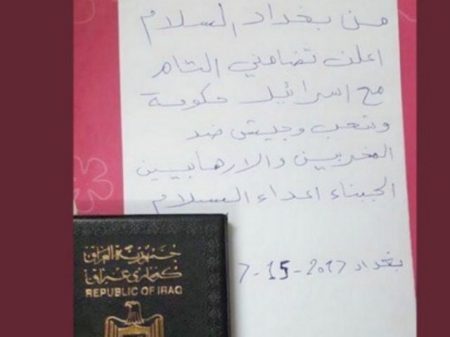 من بغداد السلام
اعلن تضامني التام
مع اسرائيل حكومة
وشعب وجيش ضد
المخربين والارهابيين
الجبناء اعداء السلام
بغداد 2017-15-7
جمهورية العراق
كۆماری عێراق
REPUBLIC OF IRAQ